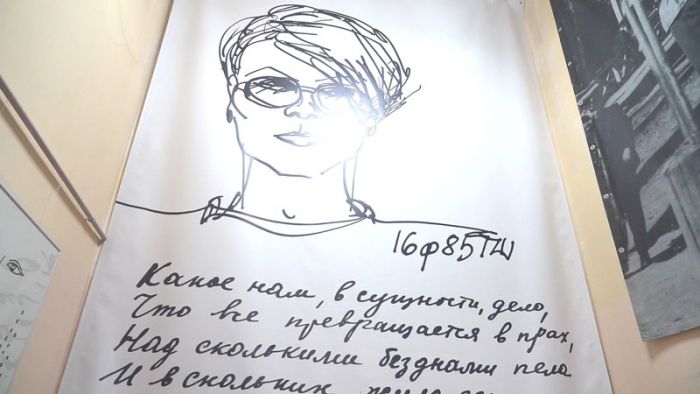 16ф85ТШ
Какое нам, в сущности, дело,
Что все превращается в прах,
Над сколькими безднами пела
И в скольких